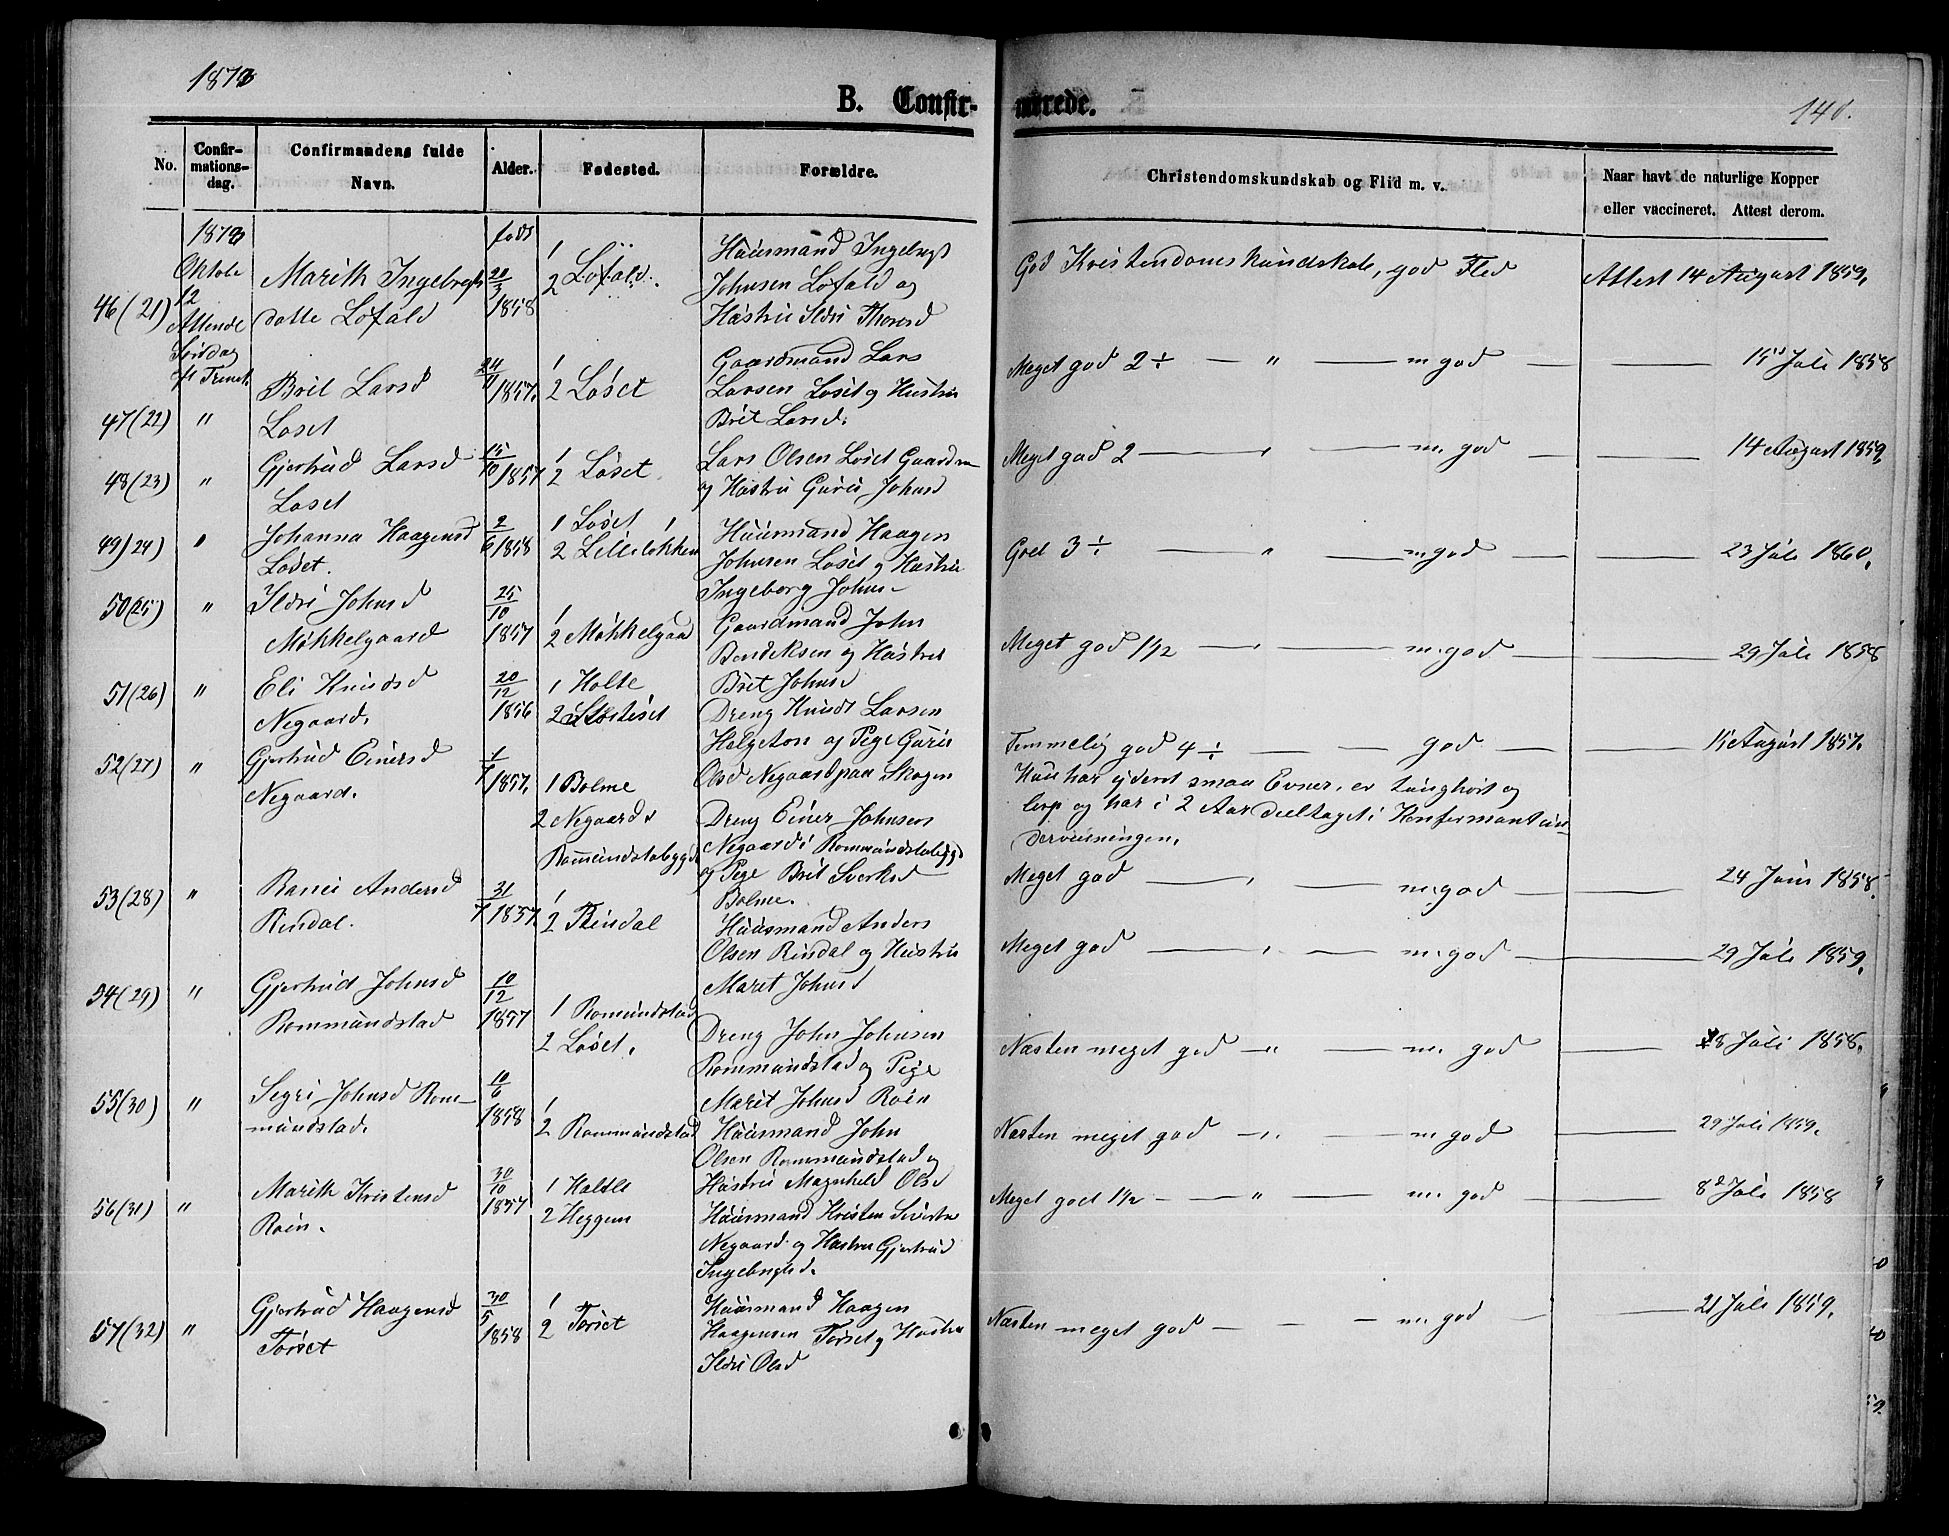 1873
B. Confir-
merede.
140.
No.
Confir-
mations-
dag.
Confirmandens fulde
Navn.
Alder.
Fødested.
Forældre.
Christendomskundskab og Flid m. v.
Naar havt de naturlige Kopper
eller vaccineret. Attest derom.
46 (21)
1873
Oktobe
12
Attende
Søndag
Marith Ingebregts
datte Løfald
født
20/3
1858
1
2 Løfald.
Huusmand Ingebregt
Johnsen Løfald og
Hustru Ildri Thoresd
God Kristendomskundskab, god Flid
Attest 14 August 1859.
47 (22)
"
Brit Larsd
Løset
1857.
1
2 Løset
Gaardmand Lars
Larsen Løset og Hustru
Brit Larsd.
Meget god 2 ÷ — " — m god
15de Juli 1858
48 (23)
"
Gjertrud Larsd
Løset
15/10 1857
1
2 Løset
Lars Olsen Løset Gaardm
og Hustru Guru Johnsd
Meget god 2 — " — m. god
14 August 1859.
49) 24)
"
Johanna Haagensd
Løset.
2/6 1858
1 Løset
2 Lilleløkken
Huusmand Haagen
Johnsen Løset og Hustru
Ingeborg Johns-
God 3 ÷ — " — m god
23 Juli 1860.
50 (25)
"
Ildri Johnsd
Møkkelgaard
25/10
1857
1
2 Møkkelgaa
Gaardmand John
Bendiksen og Hustru
Brit Johnsd
Meget god 1 1/2 — " — m. god
29 Juli 1858
51 (26)
"
Eli Knudsd
Negaard.
20/12
1856
1 Holte
2
Dreng Knudt Larsen
Helgeton og Pige Guru
Olsd Negaard paa Skogen
Temmelig god 4 ÷ — — god
15 August 1857.
Hun har yderst smaa Evner, er tunghørt og
og har i 2 Aar deeltaget i Konfirmantun-
dervisningen.
52 (27)
"
Gjertrud Einersd
Negaard.
1857.
1 Bolme
2 Negaard
Romundstabygd
Dreng Einer Johnsen
Negaard i Rommundstabygd
og Pige Brit Sverksd
Bolme.
Meget god — " — m. god
24 Juni 1858.
53 (28)
"
Ranei Andersd
Rindal.
31/7 1857.
1
2 Rindal
Huusmand Anders
Olsen Rindal og Hustru
Maret Johnsd
Meget god — " — m. god
29 Juli 1859.
54 (29)
"
Gjertrud Johnsd
Rommundstad
10/12
1857
1 Romundstad
2 Løset.
Dreng John Johnsen
Rommundstad og Pige
Marit Johnsd Røen
Næsten meget god — " — m. god
8 Juli 1858.
55 (30)
"
Segri Johnsd Rom-
mundstad.
10/6
1858
1
2 Rommundstad
Huusmand John
Olsen Rommundstad og
Hustru Magnhild Olsd
Næsten meget god — " — m god
29 Juli 1859.
56 (31)
"
Marith Kristensd
Røen.
30/10
1857
1 Holte
2 Heggem
Huusmand Kristen Siverts
Negaard og Hustru Gjertrud
Ingebrigtsd.
Meget god 1 1/2 — " — m. god
8de Juli 1858
57 (32)
"
Gjertrud Haagensd
Tørset
30/5
1858
1
2 Tørset
Huusmand Haagen
Haagensen Tørset og Hustru
Ildri Olsd
Næsten meget god — — — m. god
21 Juli 1859.